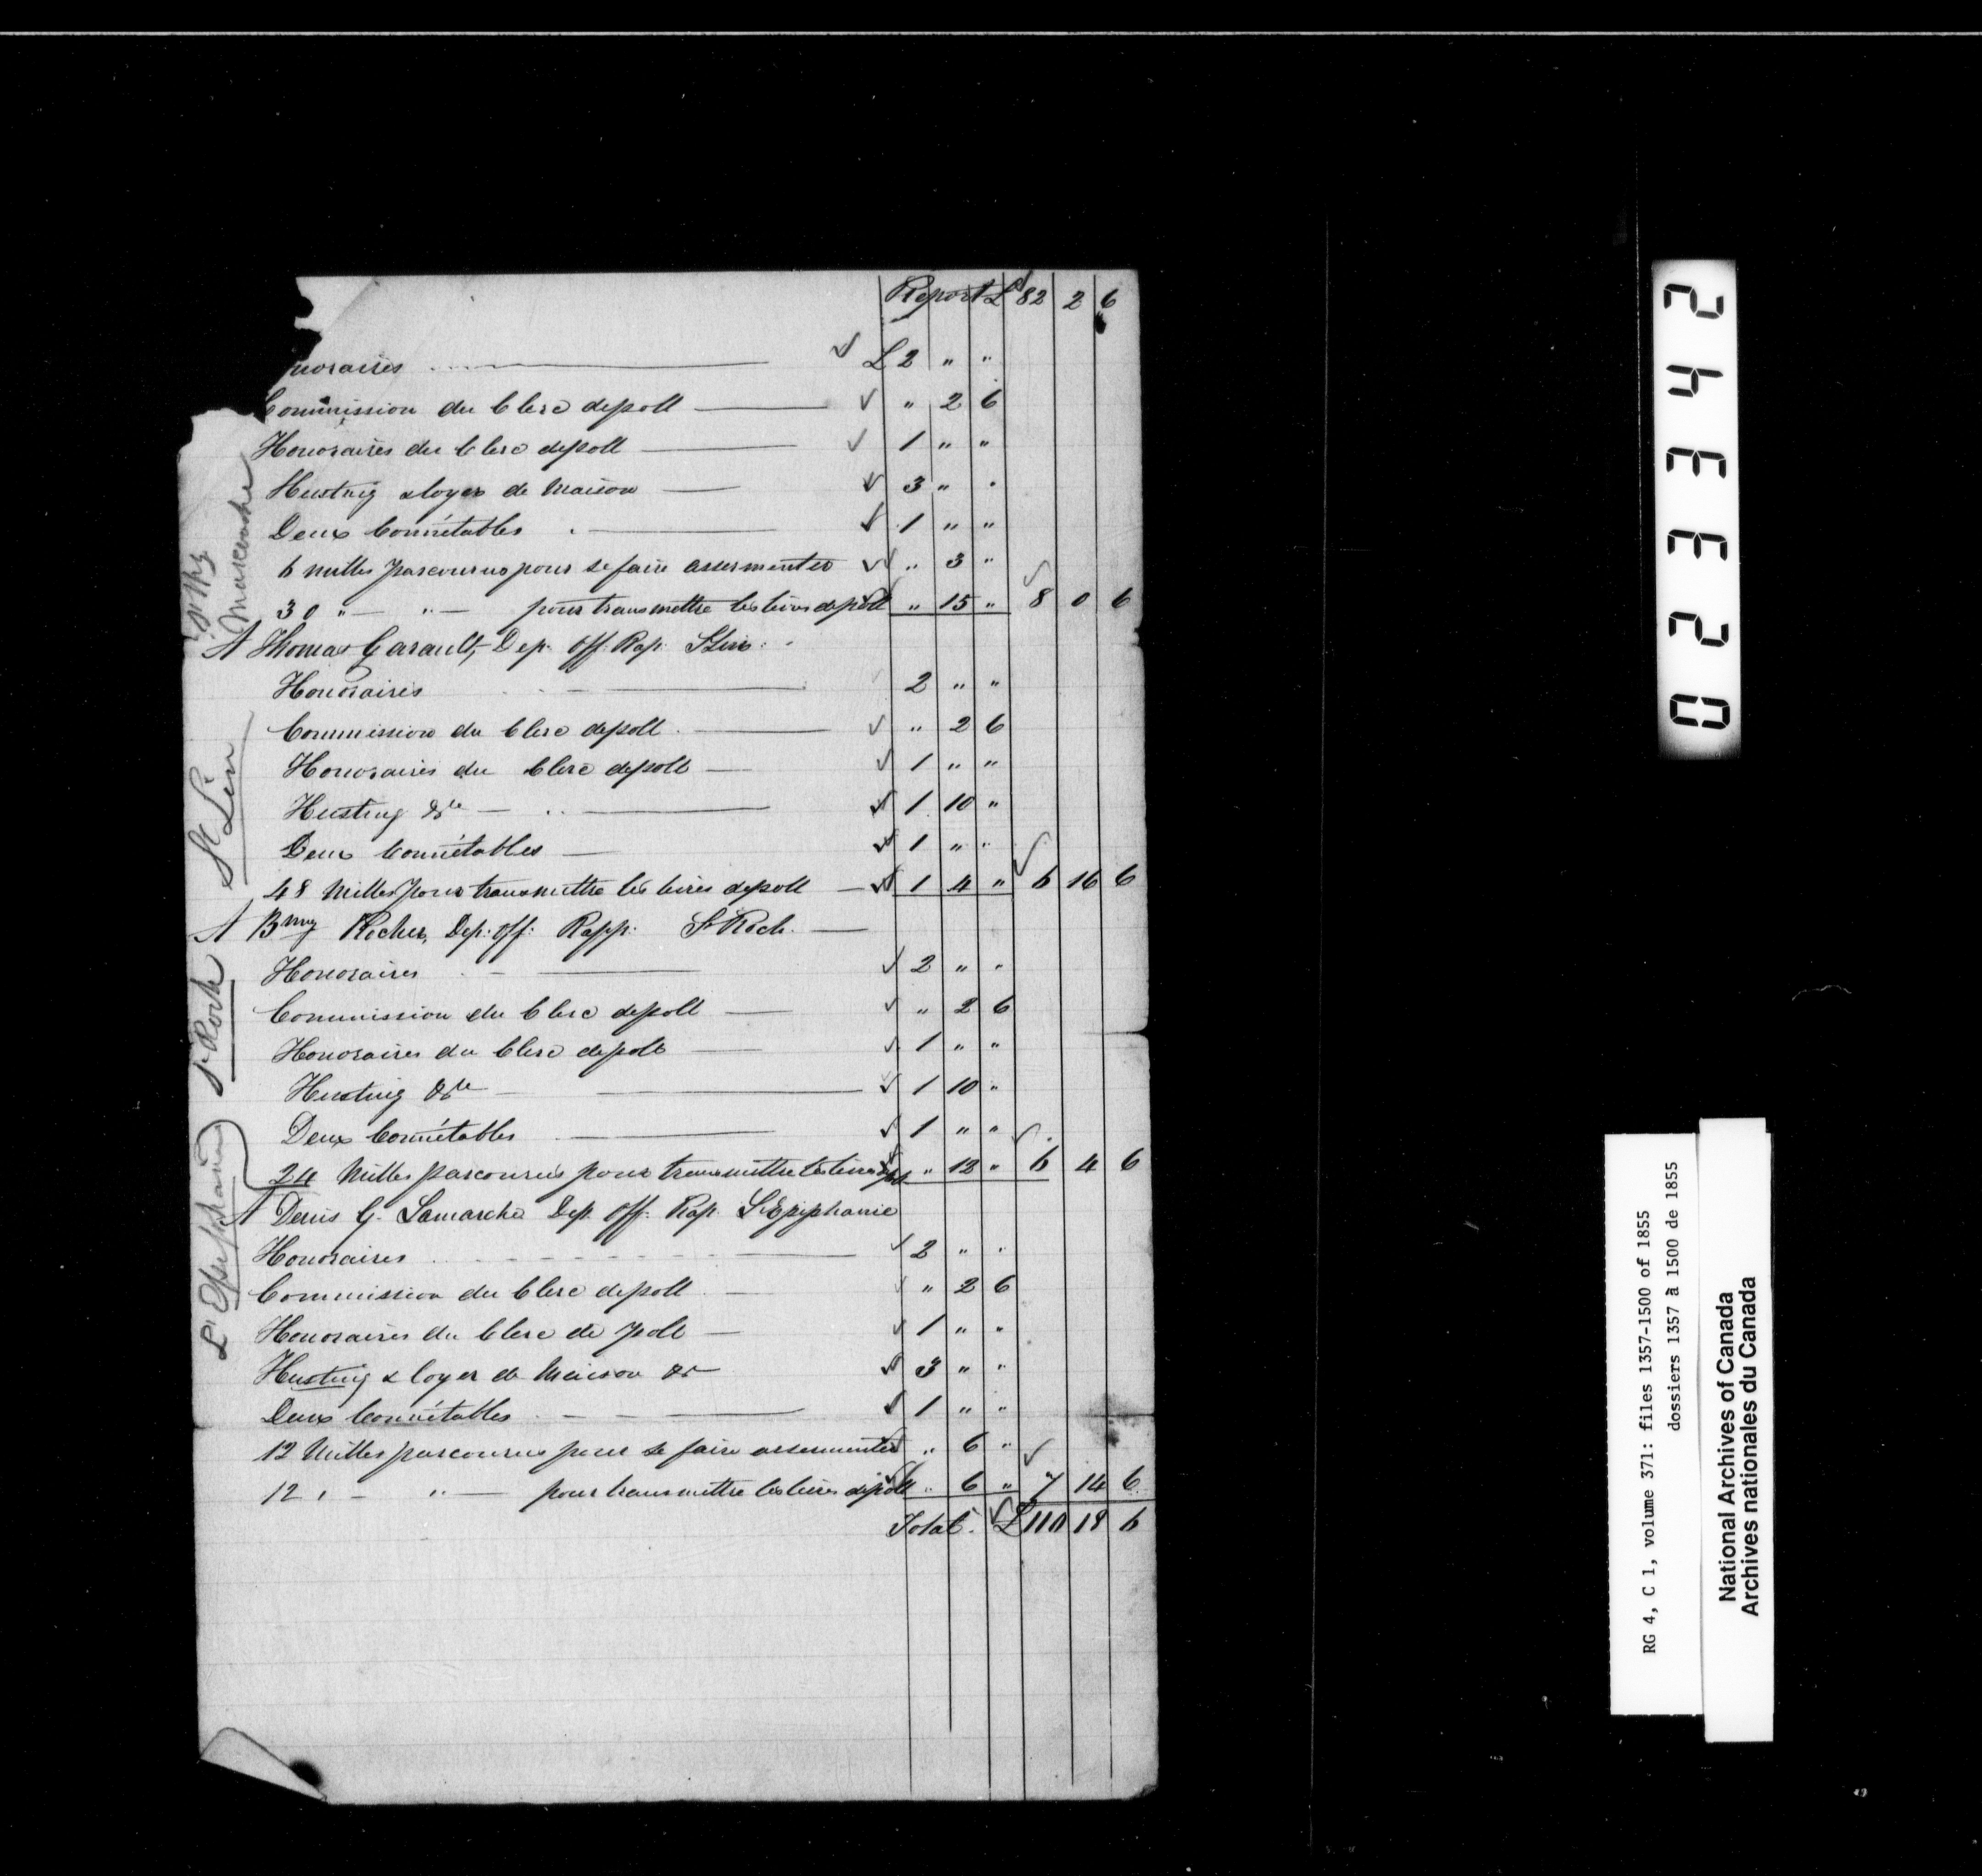 Report £ 82 2 6
noraires £ 2 " "
Commission du Clerc de poll " 2 6
Honoraires du Clerc de poll 1 " "
Husting & loyer de Maison 3 " "
Deux Connétables 1 " "
6 milles parcourus pour se faire assermenter " 3 "
30 " " pour transmettre les livres de poll " 15 " 8 0 6
Mascouche
A Thomas Garault, Dep. Off. Rap. St Lin
Honoraires 2 " "
Commission du Clerc de poll " 2 6
Honoraires du Clerc de poll 1 " "
Husting &c 1 10 "
Deux Connétables 1 " "
48 Milles pour transmettre les livres de poll 1 4 " 6 16 6
St Lin
A Bmy Rocher, Dep: Off: Rapp: St Roch
Honoraires 2 " "
Commission du Clerc de poll " 2 6
Honoraires du Clerc de poll 1 " "
Husting &c 1 10 "
Deux Connétables 1 " "
24 Milles parcourus pour transmettre les livres " 12 " 6 4 6
St Roch
A Denis G. Lamarche Dep. Off. Rap. L'Epiphanie
Honoraires 2 " "
Commission du Clerc de poll " 2 6
Honoraires du Clerc de poll 1 " "
Husting & loyer de Maison &c 3 " "
Deux Connétables 1 " "
12 Milles parcourus pour se faire assermenter " 6 "
12 " " pour transmettre les livres de poll " 6 " 7 14 6
L'Epiphanie
Total £ 110 18 6
02334 2
RG 4, C 1, volume 371: files 1357-1500 of 1855
dossiers 1357 à 1500 de 1855
National Archives of Canada
Archives nationales du Canada